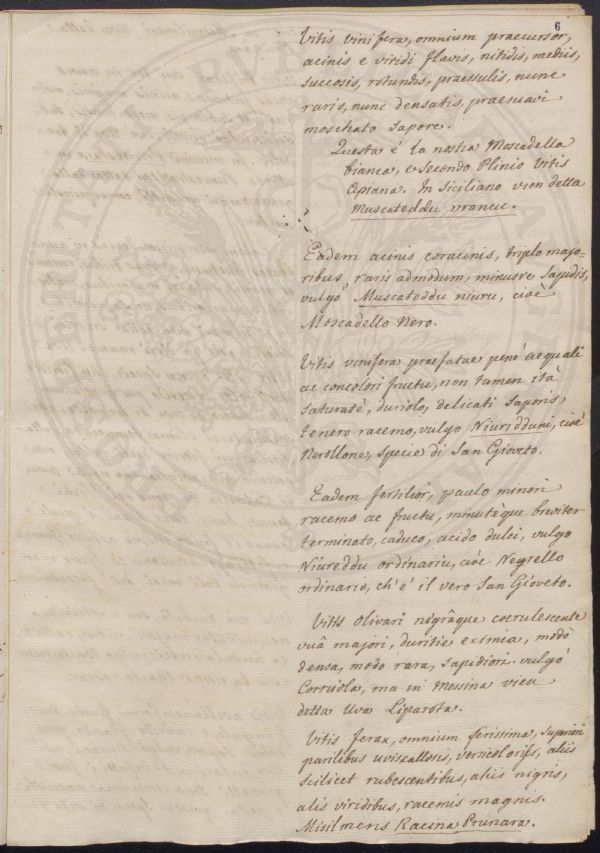 6
Vitis vinifera, omnium praecursor,
acinis e viridi flavis, nitidis, mediis,
succosis, rotundis, praesulis, nunc
raris, nunc densatis, praesuavi
moschato sapore.
Questa é la nostra Moscadella
bianca, e secondo Plinio Vitis
Apiana. In Siciliano vien detta
Muscateddu vrancu.
Eadem acinis coracinis, triplo majo-
ribus raris admodum, minusve sapidis,
vulgo Muscateddu niuru, cioè
Moscadello Nero.
Vitis vinifera praefatae penè aequali
ac concolori fructu, non tamen ità
saturatè, duriolo, delicati saporis,
tenero racemo, vulgo Niuridduni, cioè
Nerollone, specie di San Gioveto.
Eadem fertilior, paulo minori
racemo ac fructu, minutèque breviter
terminato, caduco, acido dulci, vulgo
Niureddu ordinariu, cioè Negrello
ordinario, ch' è il vero San Gioveto.
Vitis Olivari nigrâque coerulescente
uvâ majori, duritie eximia, modò
densa, modo rara, sapidiori. vulgò
Corniola, ma in Messina vien
detta Uva Liparota.
Vitis ferax, omnium serissima,
paribus versicoloris, aliis
scilicet rubescentibus, aliis nigris,
aliis viridibus, racemis magnis.
Misilmeris Racina Prunara.